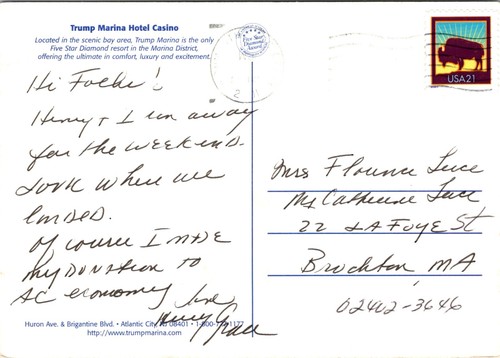 Trump Marina Hotel Casino
Located in the scenic bay area, Trump Marina is the only
Five Star Diamond resort in the Marina District,
offering the ultimate in comfort, luxury and excitement.
Hi Folks!
Henry & I run away
for the weekend.
Look where we
landed.
Of course I made
my donation to
AC economy Love
Henry Grace
Huron Ave. & Brigantine Blvd. • Atlantic City, NJ 08401 • 1-800-777-1177
http://www.trumpmarina.com
USA21
Mrs Florence Luce
Ms Catherine Luce
22 LaFoye St
Brockton, MA
02402-3646